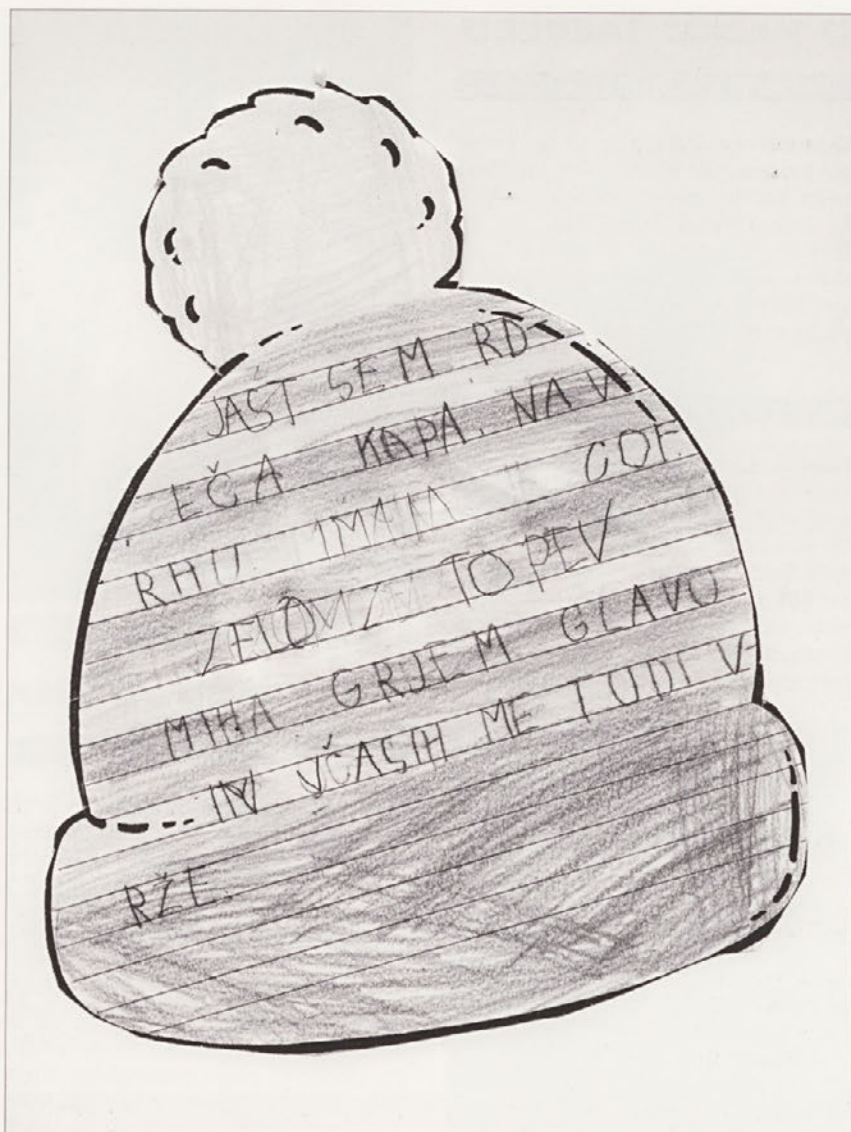 JAST SEM RD-
EČA KAPA. NA V-
RHU IMAM COF.
ZELO TOPEV
MIHA GRJEM GLAVO
IN VČASIH ME TUDI V-
RŽE.